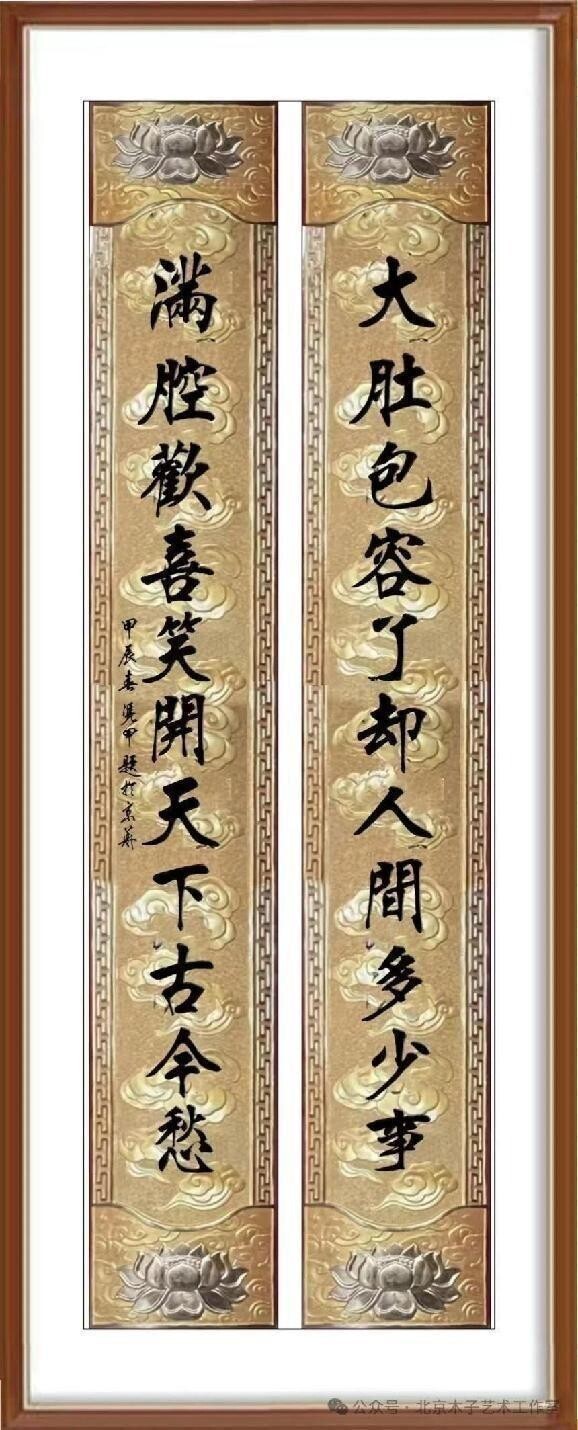 大肚包容了却人間多少事
满腔歡喜笑開天下古今愁
甲辰春 甲題於京華
公众号·北京木子艺术工作室